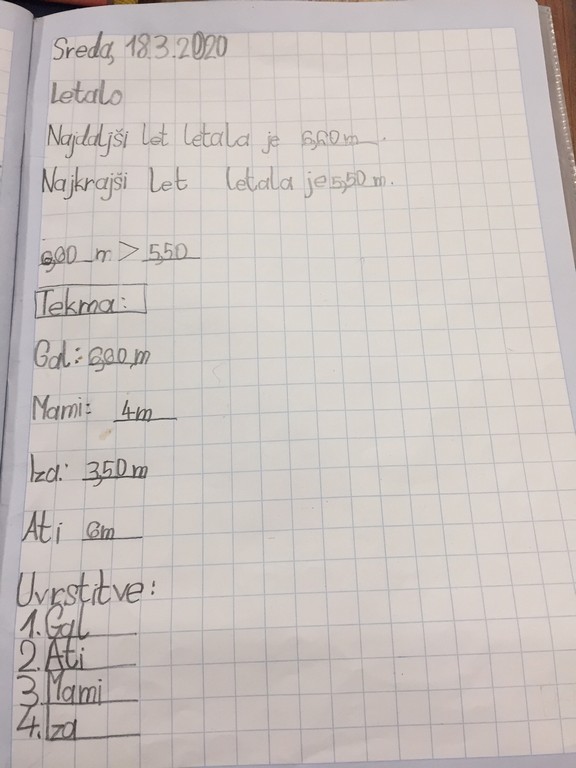 Sreda, 18.3.2020
Letalo
Najdaljši let letala je m.
Najkrajši let letala je 5,50 m.
m > 5,50
Tekma:
Gal: m
Mami: 4m
Iza: 3,50 m
Ati 6m
Uvrstitve:
1. Gal
2. Ati
3. Mami
4. Iza